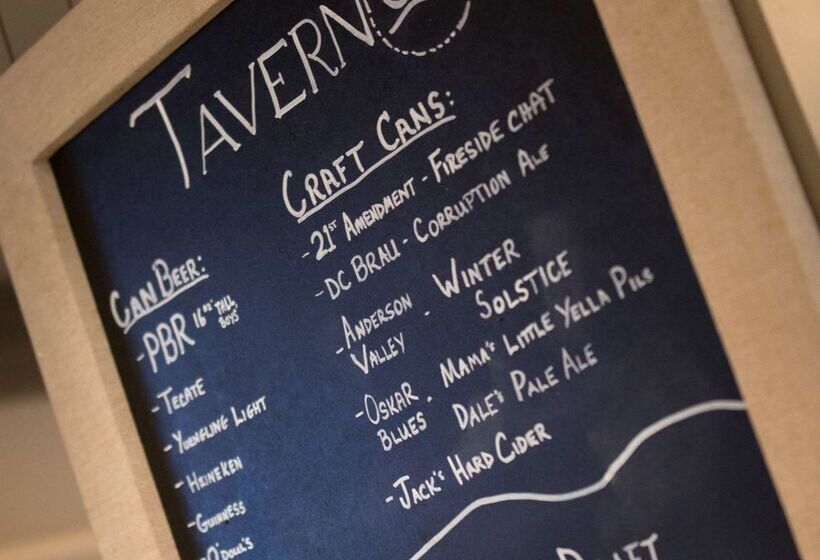 TAVERN
CRAFT CANS:
-21ST AMENDMENT - FIRESIDE CHAT
-DC BRAU - CORRUPTION ALE
-ANDERSON VALLEY - WINTER SOLSTICE
-OSKAR BLUES - MAMA'S LITTLE YELLA PILS
DALE'S PALE ALE
-JACK'S HARD CIDER
CAN BEER:
-PBR 16oz TALL BOYS
-TECATE
-YUENGLING LIGHT
-HEINEKEN
-GUINNESS
O'DOUL'S